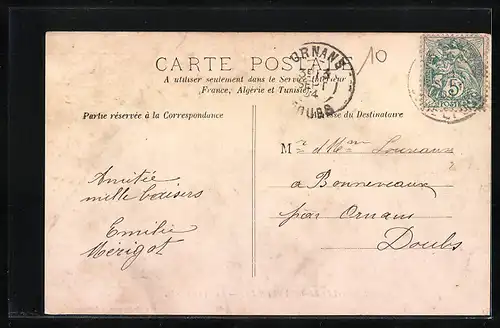 CARTE POSTALE
A utiliser seulement dans le Service Intérieur
France, Algérie et Tunisie
Partie réservée à la Correspondance
Adresse du Destinataire
ORNANS
DOUBS
10
5
POSTES
Amitiée
mille baisers
Emilie
Mérigot
Mr et Mme
à Bonnevaux
par Ornans
Doubs